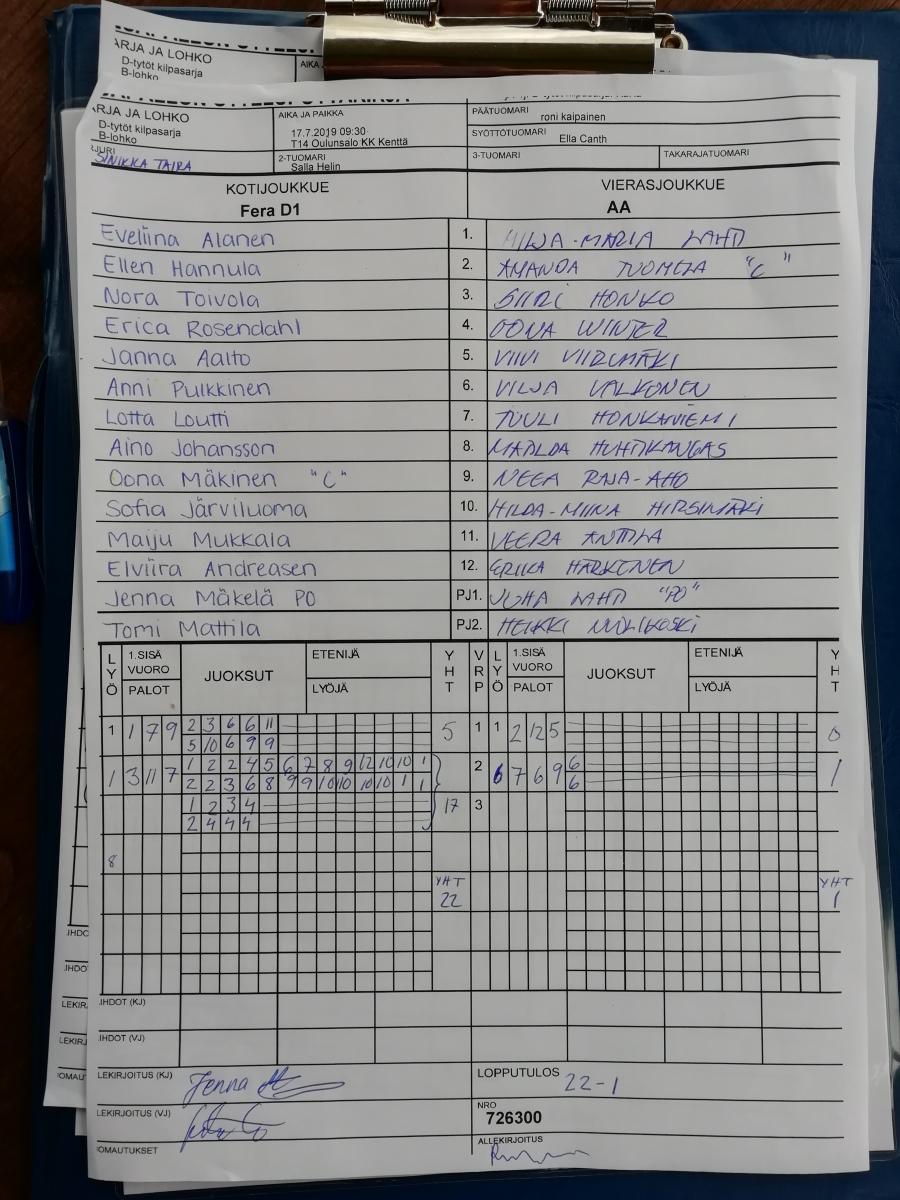 ARJA JA LOHKO
AIKA
D-tytöt kilpasarja
B-lohko
ARJA JA LOHKO
D-tytöt kilpasarja
B-lohko
AIKA JA PAIKKA
17.7.2019 09:30
T14 Oulunsalo KK Kenttä
PÄÄTUOMARI
roni kaipainen
SYÖTTÖTUOMARI
Ella Canth
SINIKKA TAIRA
2-TUOMARI
Salla Helin
3-TUOMARI
TAKARAJATUOMARI
KOTIJOUKKUE
VIERASJOUKKUE
Fera D1
AA
Eveliina Alanen 1. HILJA-MARIA LAHTI
Ellen Hannula 2. AMANDA TUOMELA "C"
Nora Toivola 3. SIIRI HONKO
Erica Rosendahl 4. OONA WINTER
Janna Aalto 5. VIIVI VIIRUMÄKI
Anni Pulkkinen 6. VILJA VALKONEN
Lotta Loutti 7. TUULI HONKANIEMI
Aino Johansson 8. MATILDA HUHTIKANGAS
Oona Mäkinen "C" 9. NEEA RAJA-AHO
Sofia Järviluoma 10. HILDA-MIINA HIRSIMÄKI
Maiju Mukkala 11. VEERA ANTTILA
Elviira Andreasen 12. ERIKA HÄRKÖNEN
Jenna Mäkelä PO PJ1. JUHA LAHTI "PO"
Tomi Mattila PJ2. HEIKKI
LYÖ 1.SISÄ VUORO PALOT JUOKSUT ETENIJÄ LYÖJÄ YHT VRP LYÖ 1.SISÄ VUORO PALOT JUOKSUT ETENIJÄ LYÖJÄ YHT
1 1 7 9 2 3 6 6 11 5 1 1 2 12 5 0
5 10 6 9 9
1 3 11 7 1 2 2 4 5 6 7 8 9 12 10 10 1 2 6 7 6 9 6 1
2 2 3 6 8 9 9 10 10 10 10 1 1 6
1 2 3 4 17 3
2 4 4 4
8
YHT YHT
22 1
IHDOT (KJ)
IHDOT (VJ)
LEKIRJOITUS (KJ) Jenna
LOPPUTULOS 22-1
LEKIRJOITUS (VJ)
NRO
726300
OMAUTUKSET
ALLEKIRJOITUS